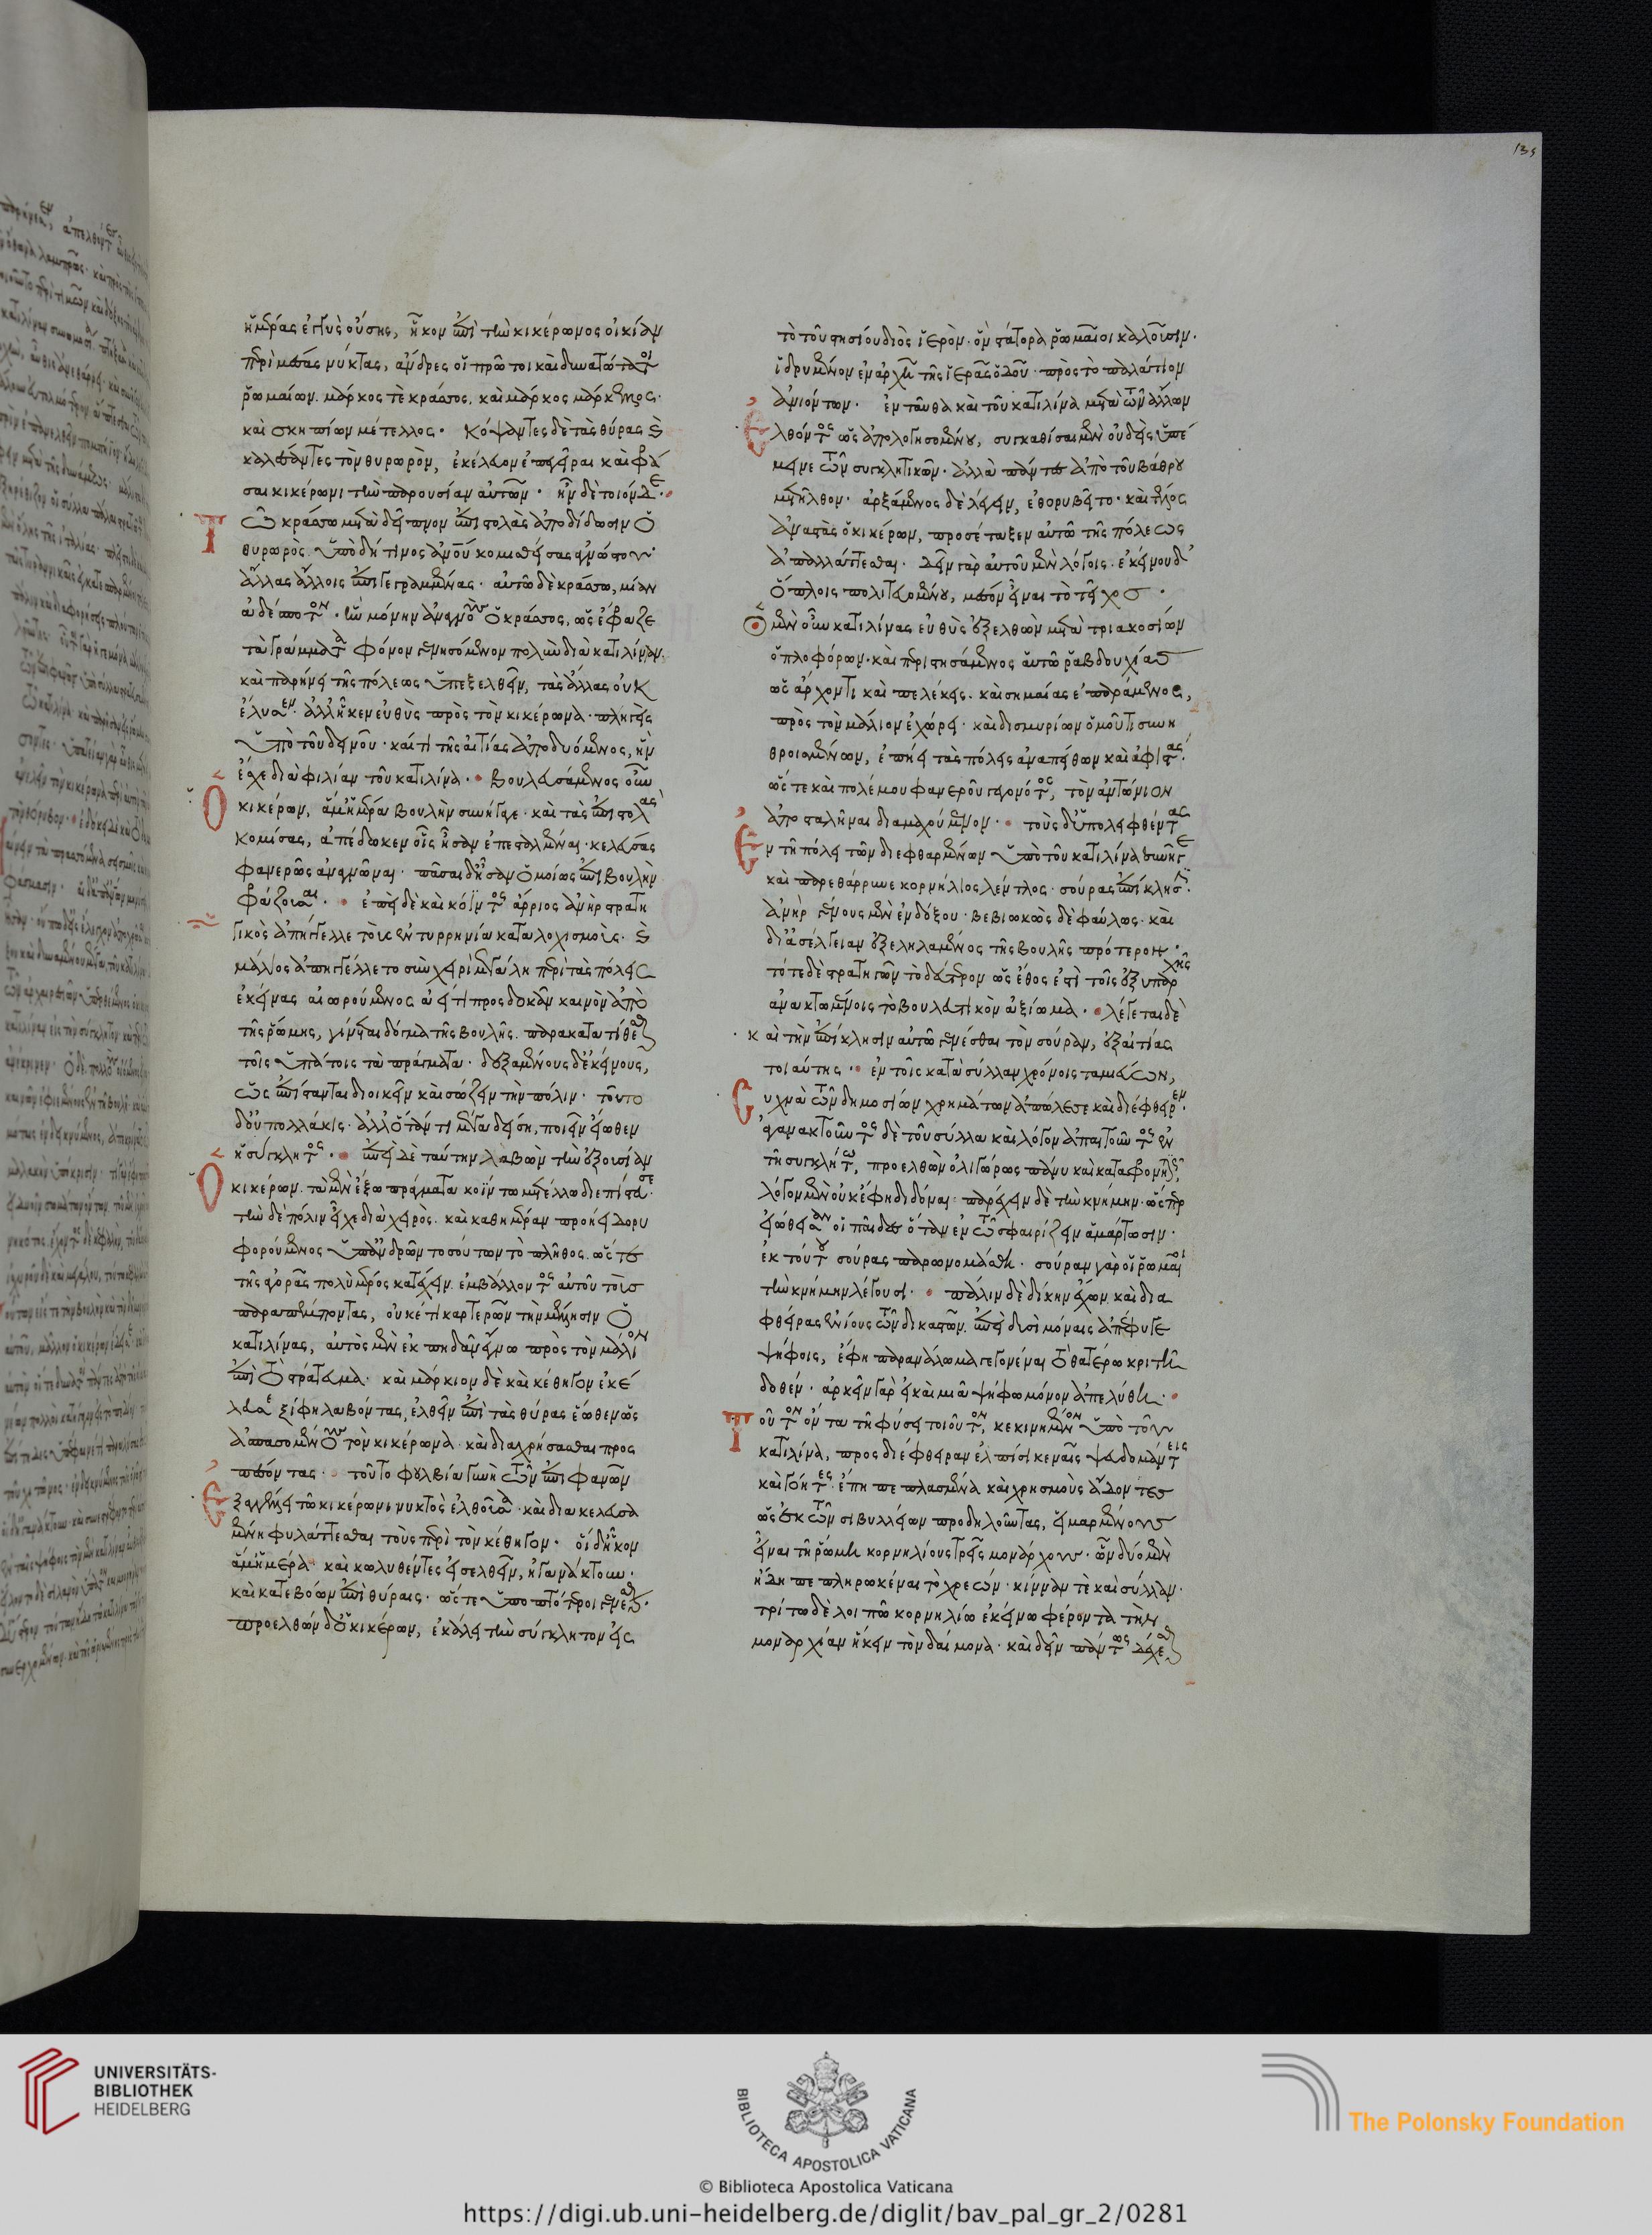 ἡμέρας ἐγγὺς οὔσης, ἧκον ἐπὶ τὴν κικέρωνος οἰκίαν
περὶ μέσας νύκτας, ἄνδρες οἱ πρῶτοι καὶ δυνατώτατοι
ῥωμαίων. μάρκος τὲ κράσσος. καὶ μάρκος μάρκελλος.
καὶ σκηπίων μέτελλος. Κόψαντες δὲ τὰς θύρας καὶ
καλέσαντες τὸν θυρωρὸν, ἐκέλευον ἐπεγεῖραι καὶ φρά
σαι κικέρωνι τὴν παρουσίαν αὐτῶν. ἦν δὲ τοιόνδε.
Τῶ κράσσω μετὰ δεῖπνον ἐπιστολὰς ἀποδίδωσιν ὁ
θυρωρὸς. ὑπὸ δή τινος ἀνου κομισθείσας ἀγνώστου.
ἄλλας ἄλλοις ἐπιγεγραμμένας. αὐτῶ δὲ κράσσω, μίαν
ἀδέσποτον. ἣν μόνην ἀναγνοὺς ὁ κράσσος, ὡς ἔφραζε
τὰ γράμματα φόνον γενησόμενον πολὺν διὰ κατιλίναν.
καὶ παρήνει τῆς πόλεως ὑπεξελθεῖν, τὰς ἄλλας οὐκ
ἔλυσεν. ἀλλ' ἧκεν εὐθὺς πρὸς τὸν κικέρωνα. πληγεὶς
ὑπὸ τοῦ δεινοῦ. καί τι τῆς αἰτίας ἀποδυόμενος, ἣν
εἶχε διὰ φιλίαν τοῦ κατιλίνα. βουλευσάμενος οὖν
Ὁ κικέρων, ἅμ' ἡμέρα βουλὴν συνήγαγε. καὶ τὰς ἐπιστολὰς
κομίσας, ἀπέδωκεν οἷς ἦσαν ἐπεσταλμέναι. κελεύσας
φανερῶς ἀναγνῶναι. πᾶσαι δ' ἦσαν ὁμοίως ἐπιβουλὴν
φράζουσαι. ἐπεὶ δὲ καὶ κόϊντος ἄρριος ἀνὴρ στρατη
γικὸς ἀπήγγελλε τοὺς ἐν τυρρηνία καταλοχισμοὺς. καὶ
μάλλιος ἀπηγγέλλετο σὺν χειρὶ μεγάλη περὶ τὰς πόλεις
ἐκείνας αἰωρούμενος ἀεί τι προσδοκᾶν καινὸν ἀπὸ
τῆς ῥώμης, γίνεται δόγμα τῆς βουλῆς. παρακατατίθεσθαι
τοῖς ὑπάτοις τὰ πράγματα. δεξαμένους δ' ἐκείνους,
ὡς ἐπίστανται διοικεῖν καὶ σώζειν τὴν πόλιν. τοῦτο
δ' οὐ πολλάκις. ἀλλ' ὅταν τι μέγα δείση, ποιεῖν εἴωθεν
ἡ σύγκλητος. ἐπεὶ δὲ ταύτην λαβὼν τὴν ἐξουσίαν
Ὁ κικέρων. τὰ μὲν ἔξω πράγματα κοΐντω μετέλλω διεπίστευσε.
τὴν δὲ πόλιν εἶχε διὰ χειρὸς. καὶ καθημέραν προήει δορυ
φορούμενος ὑπ' ἀνδρῶν τοσούτων τὸ πλῆθος. ὥστε
τῆς ἀγορᾶς πολὺ μέρος κατέχειν. ἐμβάλλοντος αὐτοῦ τοὺς
παραπέμποντας, οὐκέτι καρτερῶν τὴν μέλλησιν ὁ
κατιλίνας, αὐτὸς μὲν ἐκπηδᾶν ἔγνω πρὸς τὸν μάλιον
ἐπὶ τὸ στράτευμα. καὶ μάρκιον δὲ καὶ κέθηγον ἐκέ
λευσε ξίφη λαβόντας, ἐλθεῖν ἐπὶ τὰς θύρας ἕωθεν ὡς
ἀσπασομένους τὸν κικέρωνα. καὶ διαχρήσασθαι προσ
πεσόντας. τοῦτο φουλβία γυνὴ τῶν ἐπιφανῶν
Ἐξαγγέλλει τῶ κικέρωνι νυκτὸς ἐλθοῦσα. καὶ διακελευσα
μένη φυλάττεσθαι τοὺς περὶ τὸν κέθηγον. οἱ δ' ἧκον
ἅμ' ἡμέρα. καὶ κωλυθέντες εἰσελθεῖν, ἠγανάκτουν.
καὶ κατεβόων ἐπὶ θύραις. ὥστε ὑποπτότεροι γενέσθαι.
προελθὼν δ' ὁ κικέρων, ἐκάλει τὴν σύγκλητον εἰς
135
τὸ τοῦ στησίου διὸς ἱερὸν. ὃν στάτορα ῥωμαῖοι καλοῦσιν.
ἱδρυμένον ἐν ἀρχῆ τῆς ἱερᾶς ὁδοῦ. πρὸς τὸ παλάτιον
ἀνιόντων. ἐνταῦθα καὶ τοῦ κατιλίνα μετὰ τῶν ἄλλων
Ἐλθόντος ὡς ἀπολογησομένου, συγκαθίσαι μὲν οὐδεὶς ὑπέ
μεινε τῶν συγκλητικῶν. ἀλλὰ πάντες ἀπὸ τοῦ βάθρου
μετῆλθον. ἀρξάμενος δὲ λέγειν, ἐθορυβεῖτο. καὶ τέλος
ἀναστὰς ὁ κικέρων, προσέταξεν αὐτῶ τῆς πόλεως
ἀπαλλάττεσθαι. δεῖν γὰρ αὐτοῦ μὲν λόγοις. ἐκείνου δ'
ὅπλοις πολιτευομένου, μέσον εἶναι τὸ τεῖχος.
Ὁ μὲν οὖν κατιλίνας εὐθὺς ἐξελθὼν μετὰ τριακοσίων
ὁπλοφόρων. καὶ περιστησάμενος αὑτῶ ῥαβδουχίας
ὡς ἄρχοντι καὶ πελέκεις. καὶ σημαίας ἐπαράμενος,
πρὸς τὸν μάλιον ἐχώρει. καὶ δισμυρίων ὁμοῦ τι συνη
θροισμένων, ἐπήει τὰς πόλεις ἀναπείθων καὶ ἀφιστάς.
ὥστε καὶ πολέμου φανεροῦ γεγονότος, τὸν ἀντώνιον
ἀποσταλῆναι διαμαχούμενον. τοὺς δ' ὑπολειφθέντας
Ἐν τῆ πόλει τῶν διεφθαρμένων ὑπὸ τοῦ κατιλίνα συνῆγε
καὶ παρεθάρρυνε κορνήλιος λέντλος. σούρας ἐπίκλησιν.
ἀνὴρ γένους μὲν ἐνδόξου. βεβιωκὼς δὲ φαύλως. καὶ
δι' ἀσέλγειαν ἐξεληλαμένος τῆς βουλῆς πρότερον.
τότε δὲ στρατηγῶν τὸ δεύτερον ὡς ἔθος ἐστὶ τοῖς ἐξυπαρχῆς
ἀνακτωμένοις τὸ βουλευτικὸν ἀξίωμα. λέγεται δὲ
καὶ τὴν ἐπίκλησιν αὐτῶ γενέσθαι τὸν σούραν, ἐξ αἰτίας
τοιαύτης. ἐν τοῖς κατὰ σύλλαν χρόνοις ταμιεύων,
Συχνὰ τῶν δημοσίων χρημάτων ἀπώλεσε καὶ διέφθειρεν.
ἀγανακτοῦντος δὲ τοῦ σύλλα καὶ λόγον ἀπαιτοῦντος ἐν
τῆ συγκλήτω, προελθὼν ὀλιγώρως πάνυ καὶ καταφρονητικῶς,
λόγον μὲν οὐκ ἔφη διδόναι. παρέχειν δὲ τὴν κνήμην. ὥσπερ
εἰώθεσαν οἱ παῖδες ὅταν ἐν τῶ σφαιρίζειν ἁμάρτωσιν.
ἐκ τούτου σούρας παρωνομάσθη. σούραν γὰρ οἱ ῥωμαῖοι
τὴν κνήμην λέγουσι. πάλιν δὲ δίκην ἔχων. καὶ δια
φθείρας ἐνίους τῶν δικαστῶν. ἐπεὶ δυσὶ μόναις ἀπέφυγε
ψήφοις, ἔφη παρανάλωμα γεγονέναι τὸ θατέρω κριτῆ
δοθέν. ἀρκεῖν γὰρ εἰ καὶ μιᾶ ψήφω μόνον ἀπελύθη.
Τοῦτον ὄντα τῆ φύσει τοιοῦτον, κεκινημένον ὑπὸ τοῦ
κατιλίνα, προσδιέφθειραν ἐλπίσι κεναῖς ψευδομάντεις
καὶ γόητες. ἔπη πεπλασμένα καὶ χρησμοὺς ἄδοντες
ὡς ἐκ τῶν σιβυλλείων προδηλοῦντας, εἱμαρμένους
εἶναι τῆ ῥώμη κορνηλίους τρεῖς μονάρχους. ὧν δύο μὲν
ἤδη πεπληρωκέναι τὸ χρεών. κίνναν τὲ καὶ σύλλαν.
τρίτω δὲ λοιπῶ κορνηλίω ἐκείνω φέροντα τὴν
μοναρχίαν ἥκειν τὸν δαίμονα. καὶ δεῖν πάντως δέχεσθαι
UNIVERSITÄTS-
BIBLIOTHEK
HEIDELBERG
BIBLIOTECA APOSTOLICA VATICANA
© Biblioteca Apostolica Vaticana
The Polonsky Foundation
https://digi.ub.uni-heidelberg.de/diglit/bav_pal_gr_2/0281